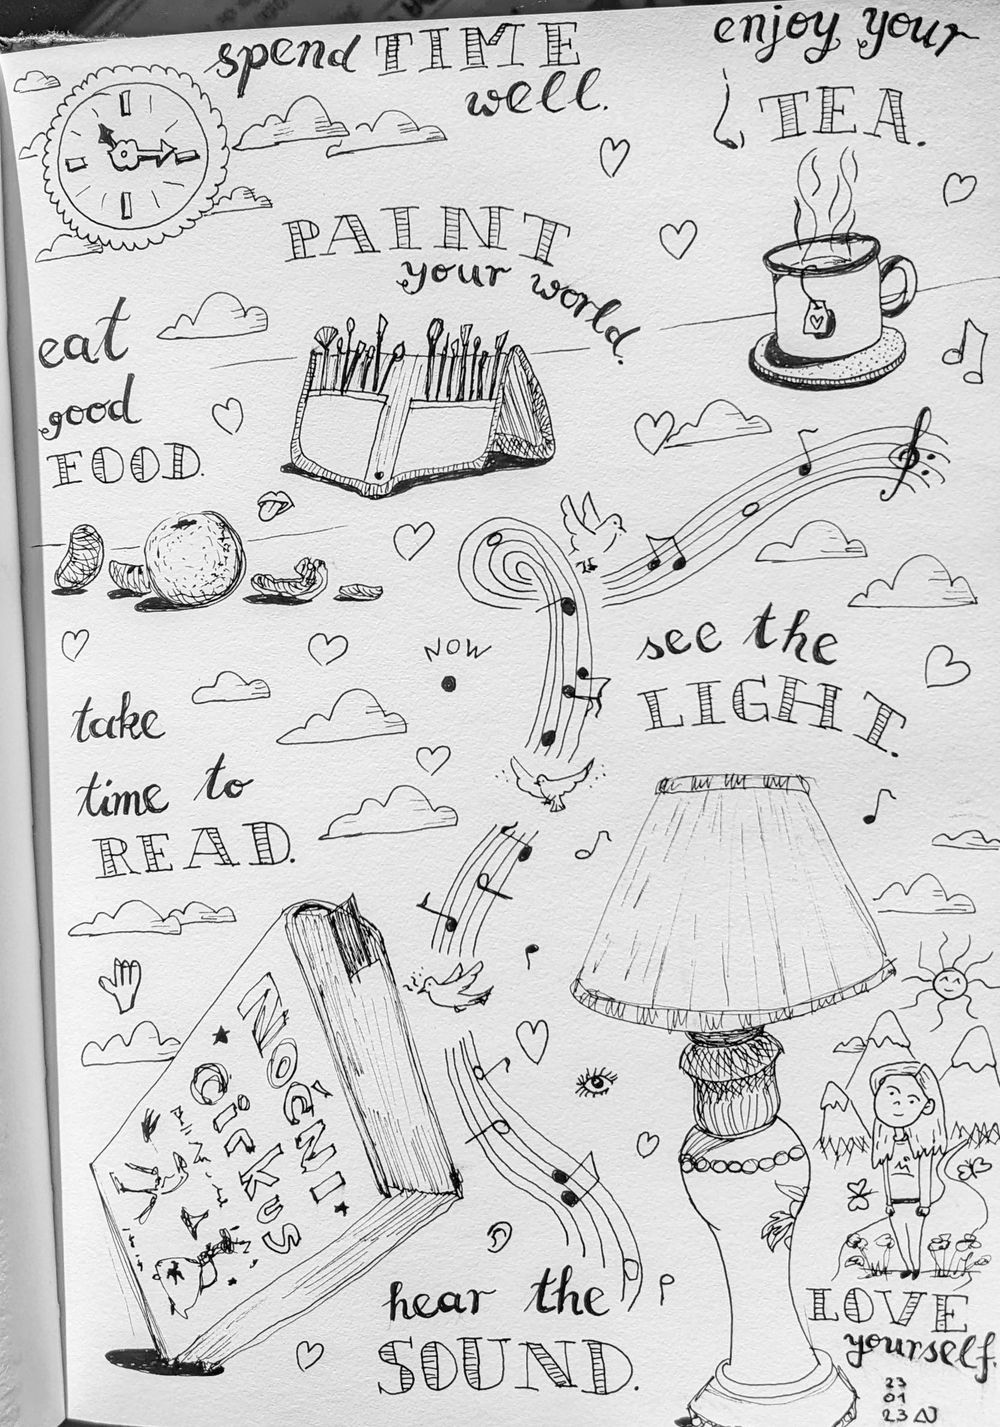 spend TIME
well.
enjoy your
TEA.
PAINT
your world.
eat
good
FOOD.
NOW
see the
LIGHT.
take
time to
READ.
NOČNI
CiRKUS
hear the
SOUND.
LOVE
yourself.
23
01
23